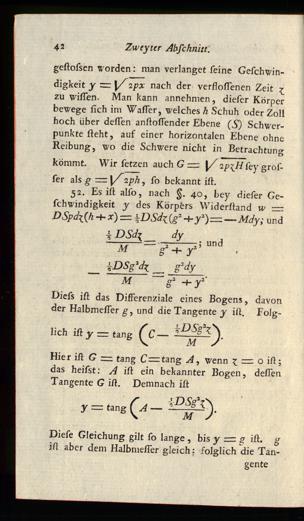 42 Zweyter Abſchnitt.
geſtoſsen worden: man verlanget ſeine Geſchwin-
digkeit y = √2px nach der verfloſſenen Zeit z
zu wiſſen. Man kann annehmen, dieſer Körper
bewege ſich im Waſſer, welches h Schuh oder Zoll
hoch über deſſen anſtoſſender Ebene (S) Schwer-
punkte ſteht, auf einer horizontalen Ebene ohne
Reibung, wo die Schwere nicht in Betrachtung
kömmt. Wir ſetzen auch G = √2pzH ſey groſ-
ſer als g = √2ph, ſo bekannt iſt.
52. Es iſt alſo, nach §. 40, bey dieſer Ge-
ſchwindigkeit y des Körpers Widerſtand w =
DSpdz(h + x) = ½DSdz(g² + y²) = — Mdy; und
½ DSdz / M = dy / g² + y²; und
— ½DSg²dz / M = g²dy / g² + y².
Dieſs iſt das Differenziale eines Bogens, davon
der Halbmeſſer g, und die Tangente y iſt. Folg-
lich iſt y = tang (C — ½DSg²z / M).
Hier iſt G = tang C = tang A, wenn z = 0 iſt;
das heiſst: A iſt ein bekannter Bogen, deſſen
Tangente G iſt. Demnach iſt
y = tang (A — ½DSg²z / M).
Dieſe Gleichung gilt ſo lange, bis y = g iſt. g
iſt aber dem Halbmeſſer gleich; folglich die Tan-
gente